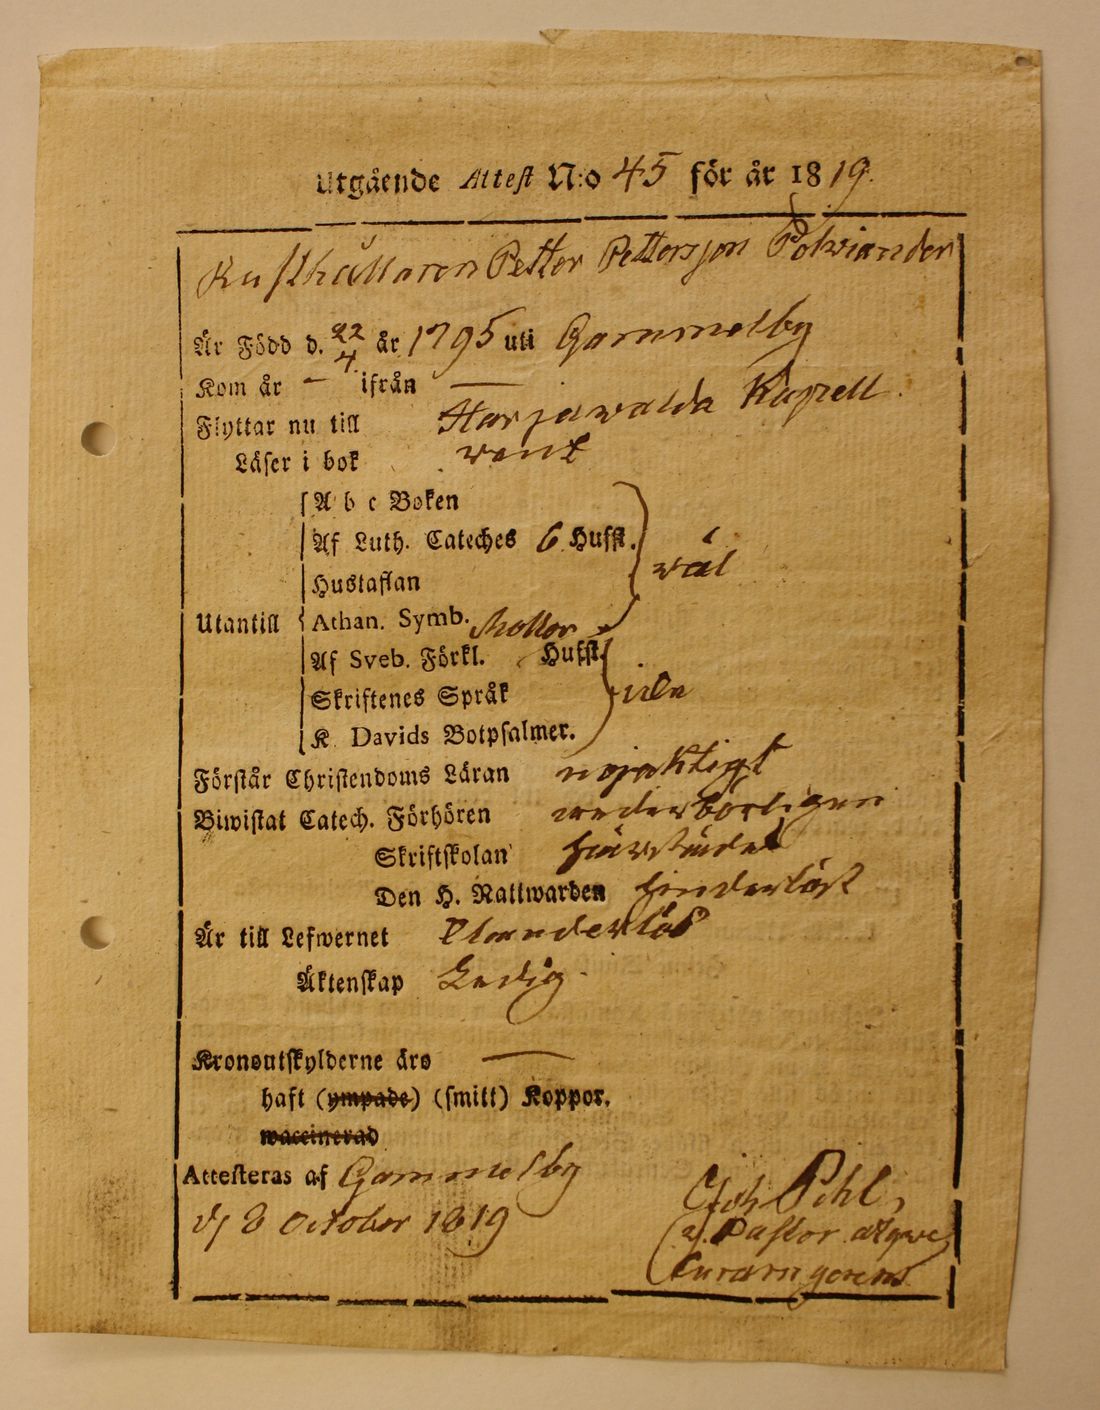 Utgående Attest N:o 45 för år 1819.
Rusthållaren Petter Pettersson Polviander
Är Född d. 22/4 år 1795 uti Gammelby
Kom år — ifrån —
Flyttar nu till Harjawalda Kapell.
Läser i bok rent
A b c Boken
Af Luth. Cateches 6 Hufst.
Hustaflan
wäl
Utantill Athan. Symb.
Af Sveb. Förkl. Hufst.
Skriftenes Språk
K. Davids Botpsalmer.
Förstår Christendoms Läran nöjaktigt
Biwistat Catech. Förhören wederbörligen
Skriftskolan härstädes
Den H. Nattwarden hinderlöst
Är till Lefwernet Klanderlös
Äktenskap Ledig.
Kronoutskylderne äro —
haft (ympade) (smitt) Koppor.
waccinerad
Attesteras af Gammelby
d. 8 October 1819
Joh Pihl,
v. Pastor atque
Curam gerens